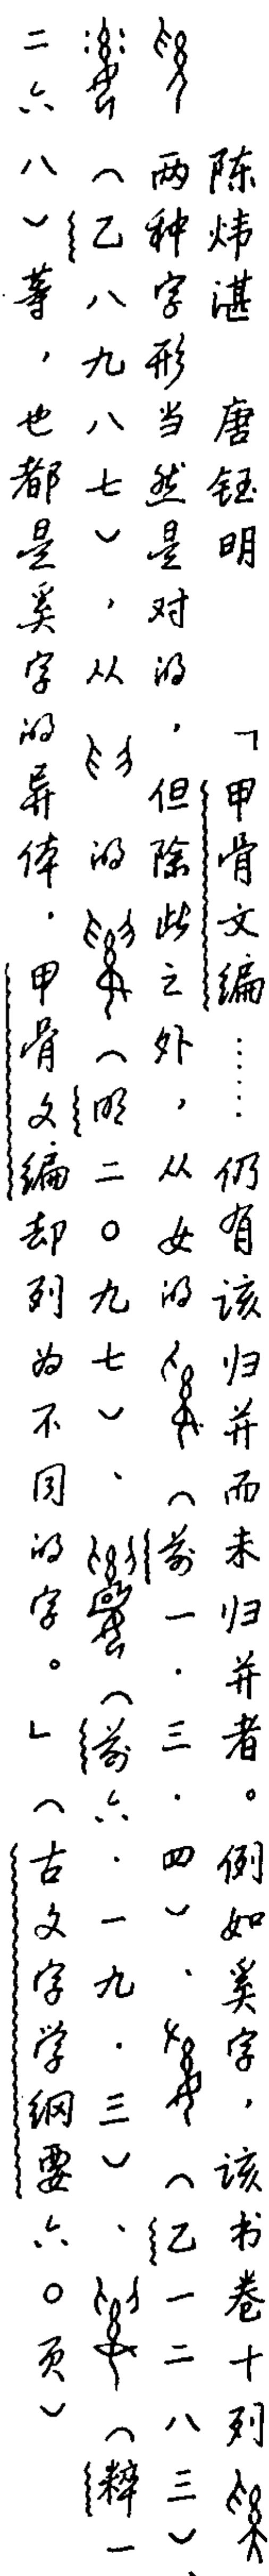 陈炜湛　唐钰明　「甲骨文编……仍有该归并而未归并者。例如奚字，该书卷十列
两种字形当然是对的，但除此之外，从女的（前一·三·四）、（乙一二八三）、
（乙八九八七），从的（明二〇九七）、（前六·一九·三）、（粹一
二六八）等，也都是奚字的异体．甲骨文编却列为不同的字。」（古文字学纲要六〇页）